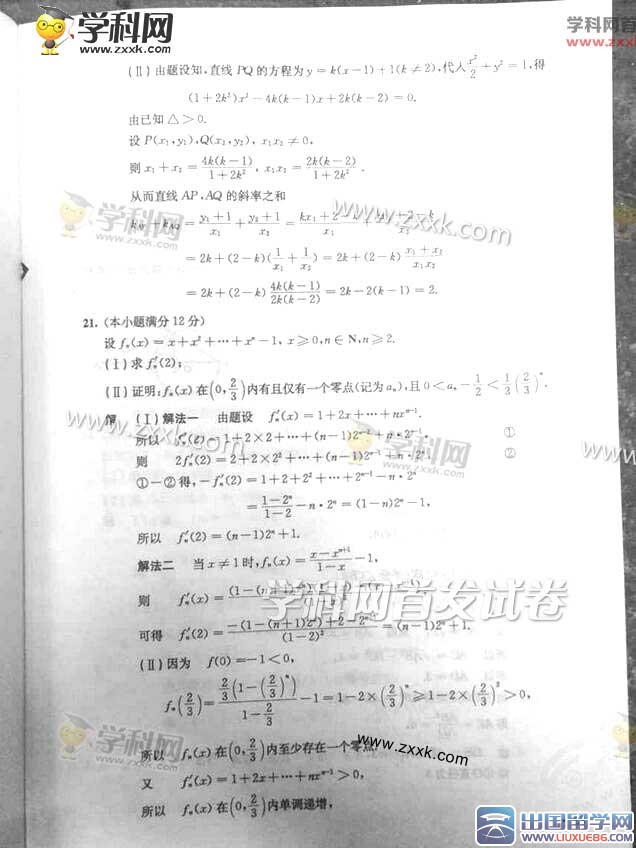 学科网
www.zxxk.com
学科网
www.zxxk.c
(Ⅱ)由题设知,直线 PQ 的方程为 y = k(x−1)+1(k≠2),代入 x²/2 + y² = 1,得
(1+2k²)x² − 4k(k−1)x + 2k(k−2) = 0.
由已知 △>0.
设 P(x₁,y₁),Q(x₂,y₂), x₁x₂ ≠ 0,
则 x₁+x₂ = 4k(k−1)/(1+2k²), x₁x₂ = 2k(k−2)/(1+2k²).
从而直线 AP,AQ 的斜率之和
k_AP + k_AQ = (y₁+1)/x₁ + (y₂+1)/x₂ = (kx₁+2−k)/x₁ + (kx₂+2−k)/x₂
= 2k+(2−k)(1/x₁ + 1/x₂) = 2k+(2−k) (x₁+x₂)/(x₁x₂)
= 2k+(2−k) 4k(k−1)/(2k(k−2)) = 2k−2(k−1) = 2.
21. (本小题满分 12 分)
设 fₙ(x) = x+x²+⋯+xⁿ−1, x≥0,n∈N,n≥2.
(Ⅰ)求 fₙ′(2);
(Ⅱ)证明:fₙ(x) 在(0, 2/3)内有且仅有一个零点(记为 aₙ),且 0<aₙ−1/2<1/3(2/3)ⁿ.
解 (Ⅰ)解法一 由题设 fₙ′(x) = 1+2x+⋯+nxⁿ⁻¹.
所以 fₙ′(2) = 1+2×2+⋯+(n−1)2ⁿ⁻²+n·2ⁿ⁻¹ ①
则 2fₙ′(2) = 2+2×2²+⋯+(n−1)2ⁿ⁻¹+n·2ⁿ, ②
①−②得,−fₙ′(2) = 1+2+2²+⋯+2ⁿ⁻¹−n·2ⁿ
= (1−2ⁿ)/(1−2) − n·2ⁿ = (1−n)2ⁿ−1,
所以 fₙ′(2) = (n−1)2ⁿ+1.
解法二 当 x≠1 时,fₙ(x) = (x−xⁿ⁺¹)/(1−x) − 1,
则 fₙ′(x) =
可得 fₙ′(2) = (−(1−(n+1)2ⁿ)+2−2ⁿ⁺¹)/(1−2)² = (n−1)2ⁿ+1.
(Ⅱ)因为 f(0)=−1<0,
fₙ(2/3) = (2/3(1−(2/3)ⁿ))/(1−2/3) − 1 = 1−2×(2/3)ⁿ ≥ 1−2×(2/3)² > 0,
所以 fₙ(x) 在(0, 2/3)内至少存在一个零点,
又 fₙ′(x) = 1+2x+⋯+nxⁿ⁻¹>0,
所以 fₙ(x) 在(0, 2/3)内单调递增,
学科网
www.zxxk.com
www.zxxk.com
www.zxxk.com
学科网
zxxk.com
学科网首发试卷
学科网
www.zxxk.com
www.zxxk.com
出国留学网
www.liuxue86.com